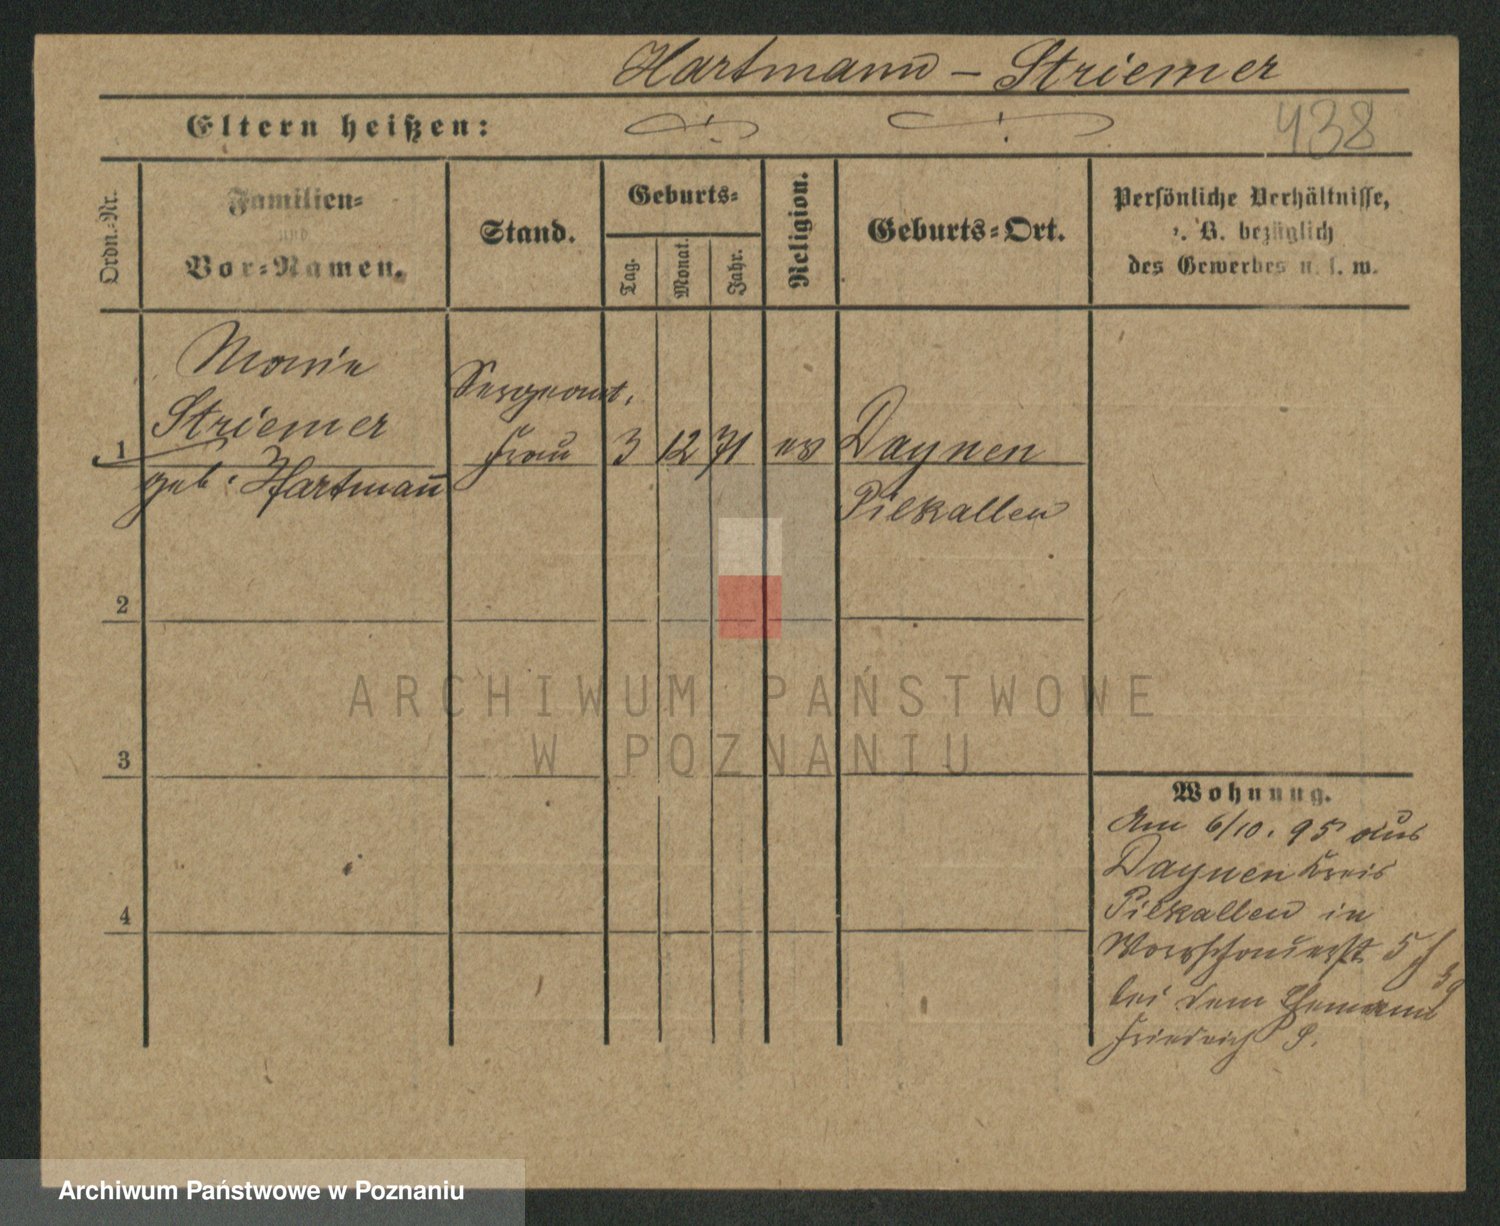 Hartmann - Striemer
Eltern heißen:
438
Ordn.-Nr.
Familien-
und
Vor-Namen.
Stand.
Geburts-
Tag.
Monat.
Jahr.
Religion.
Geburts-Ort.
Persönliche Verhältnisse,
z. B. bezüglich
des Gewerbes u. s. w.
1
Marie
Striemer
geb. Hartmann
Sergeant.
Frau
3 12 71 ev
Daynen
Pilkallen
2
3
4
Wohnung.
Am 6/10. 95 aus
Daynen Kreis
Pilkallen in
Warschauerst. 5
bei dem Ehemann
Friedrich S.
ARCHIWUM PAŃSTWOWE
W POZNANIU
Archiwum Państwowe w Poznaniu